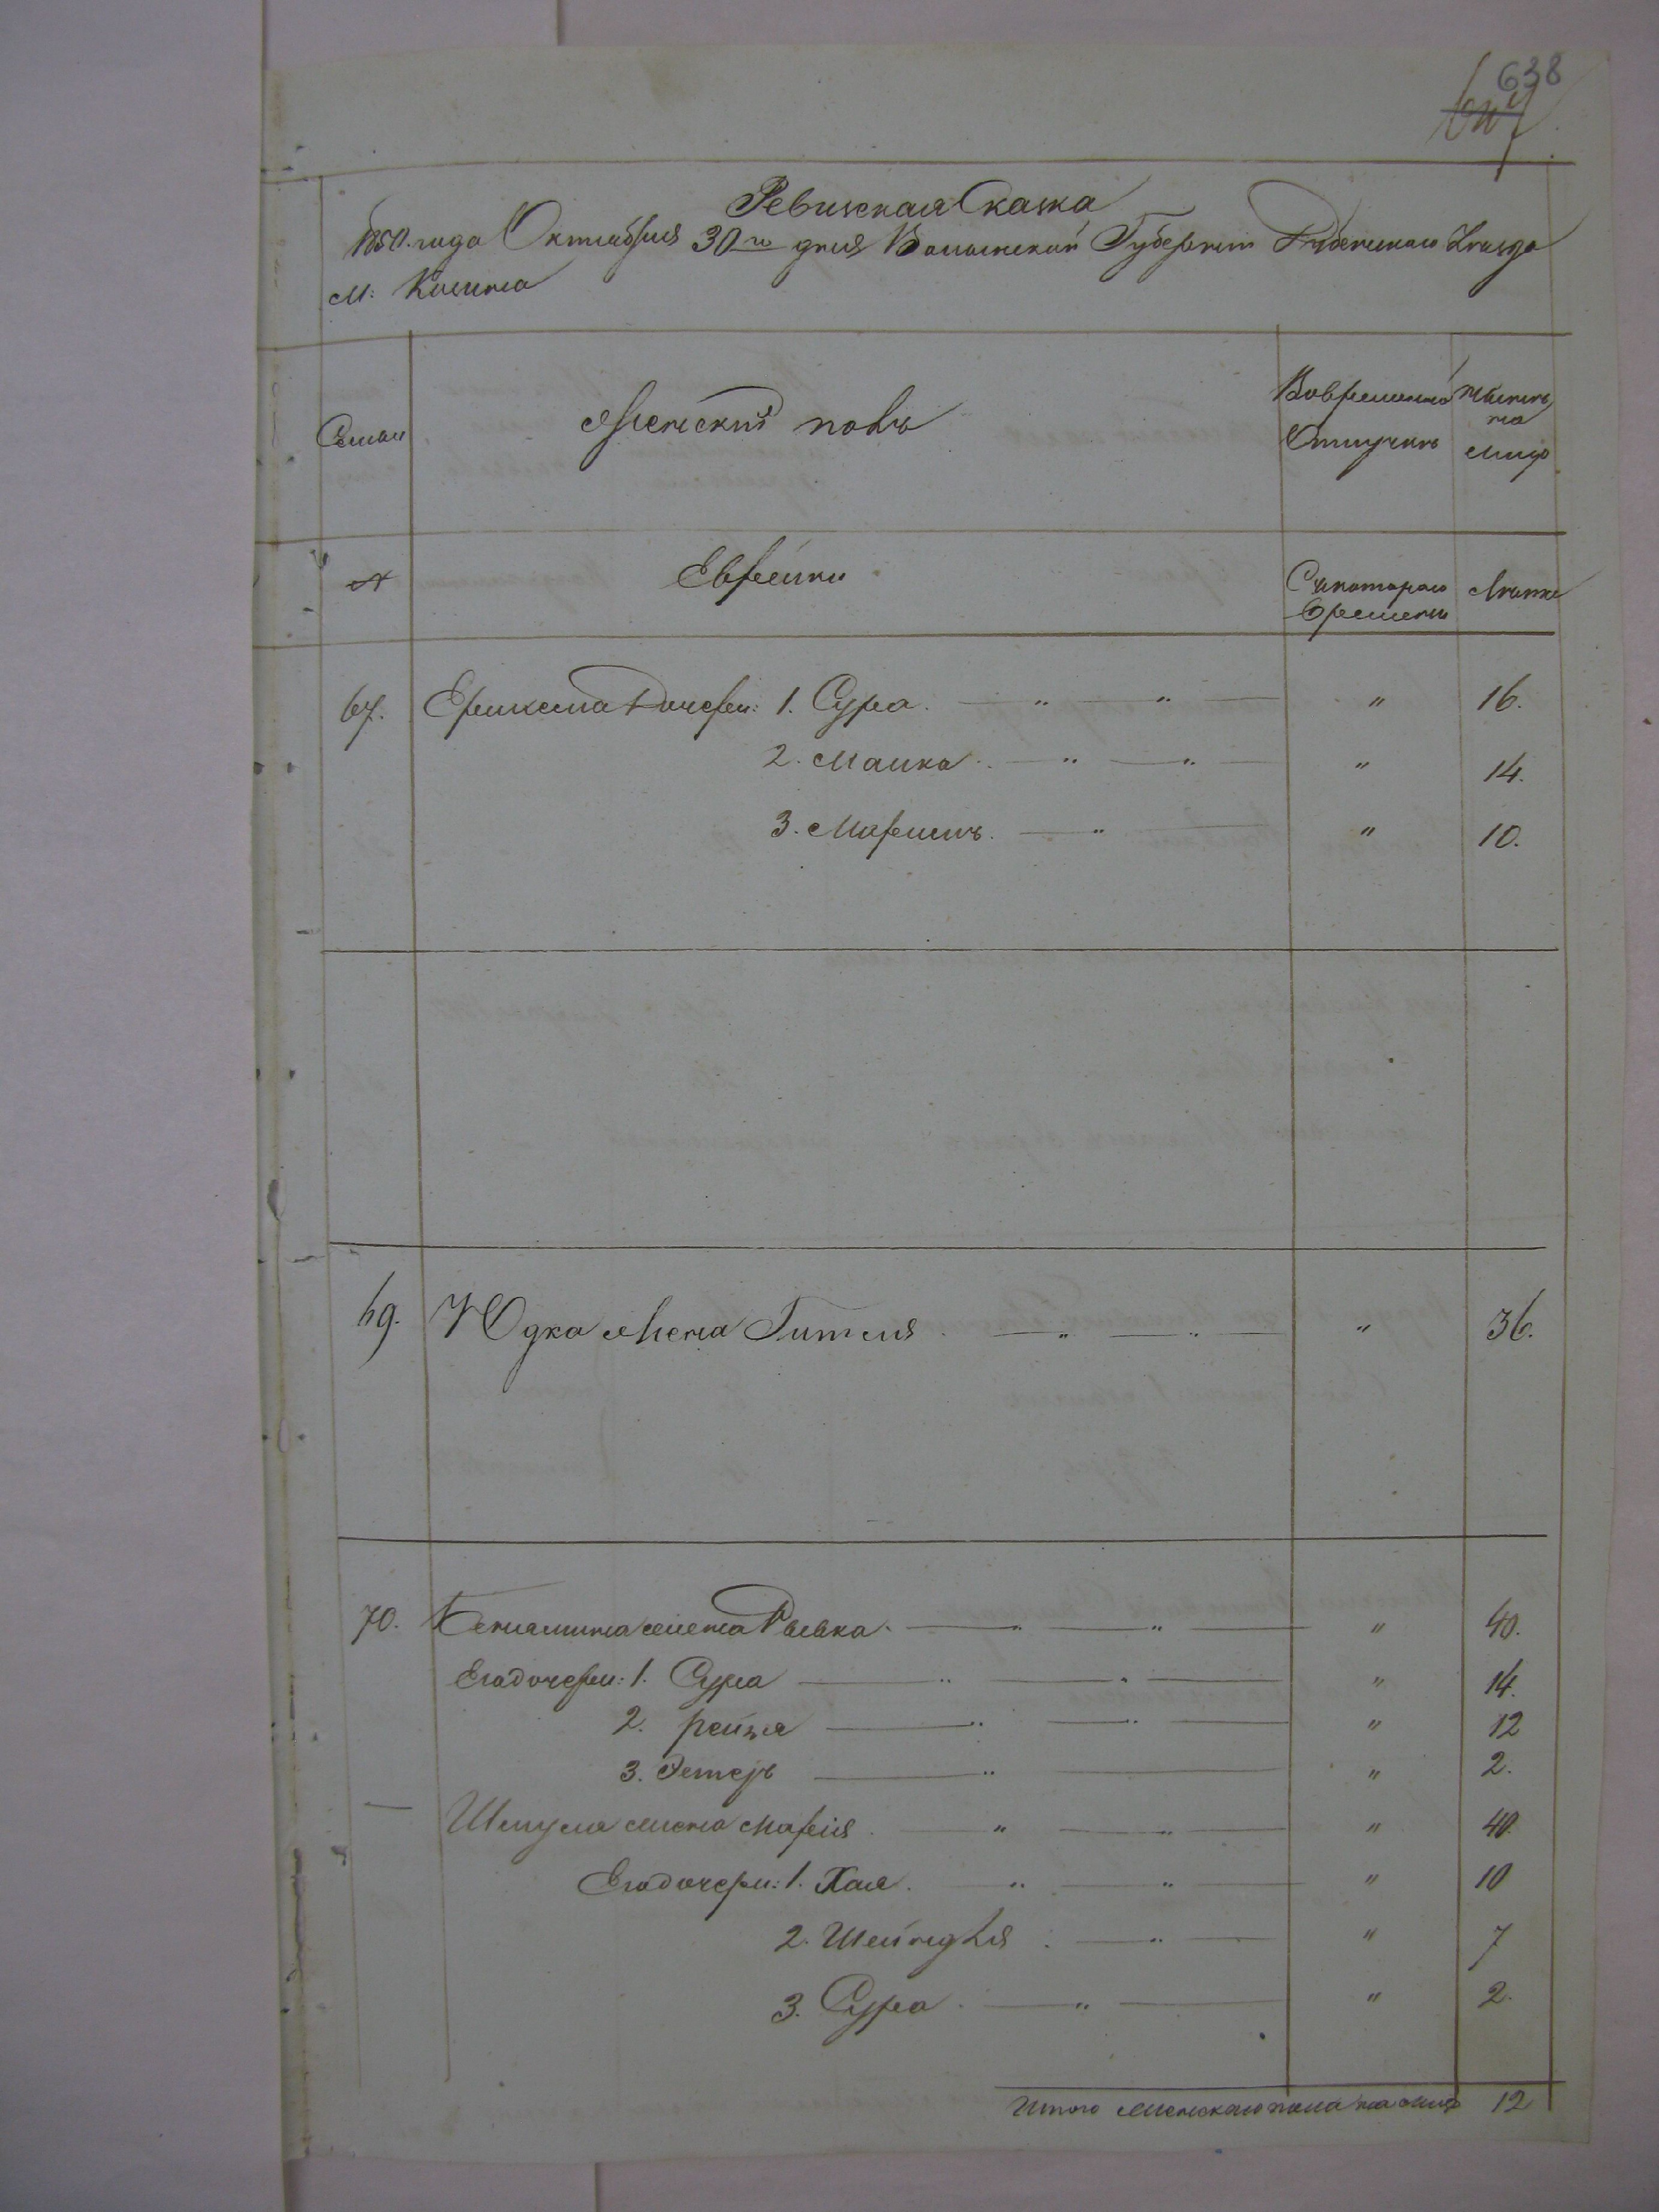 638
Ревизская Сказка
1850. года Октября 30го дня Волынской Губернии Дубенского Уезда
М: Козина
Семьи
Женский полъ
Вовременной Отлучкѣ
Ныне на лицо
№
Еврейки
Съкотораго Времени
Лѣта
67. Ерихема Дочери: 1. Сура. — " — " — " 16.
2. Малка. — " — " — " 14.
3. Маремъ. — " — " 10.
69. Юдка жена Гителя. — " — " — " 36.
70. Бениамина жена Рывка. — " — " — " 40.
Егодочери: 1. Сура — " — " — " 14.
2. Рейзя — " — " — " 12
3. Эстеръ — " — " 2.
— Шмуля жена Марія. — " — " — " 40.
Егодочери: 1. Хая. — " — " — " 10
2. Шейндля. — " — " 7
3. Сура. — " — " 2.
Итого женскаго пола на лицо 12